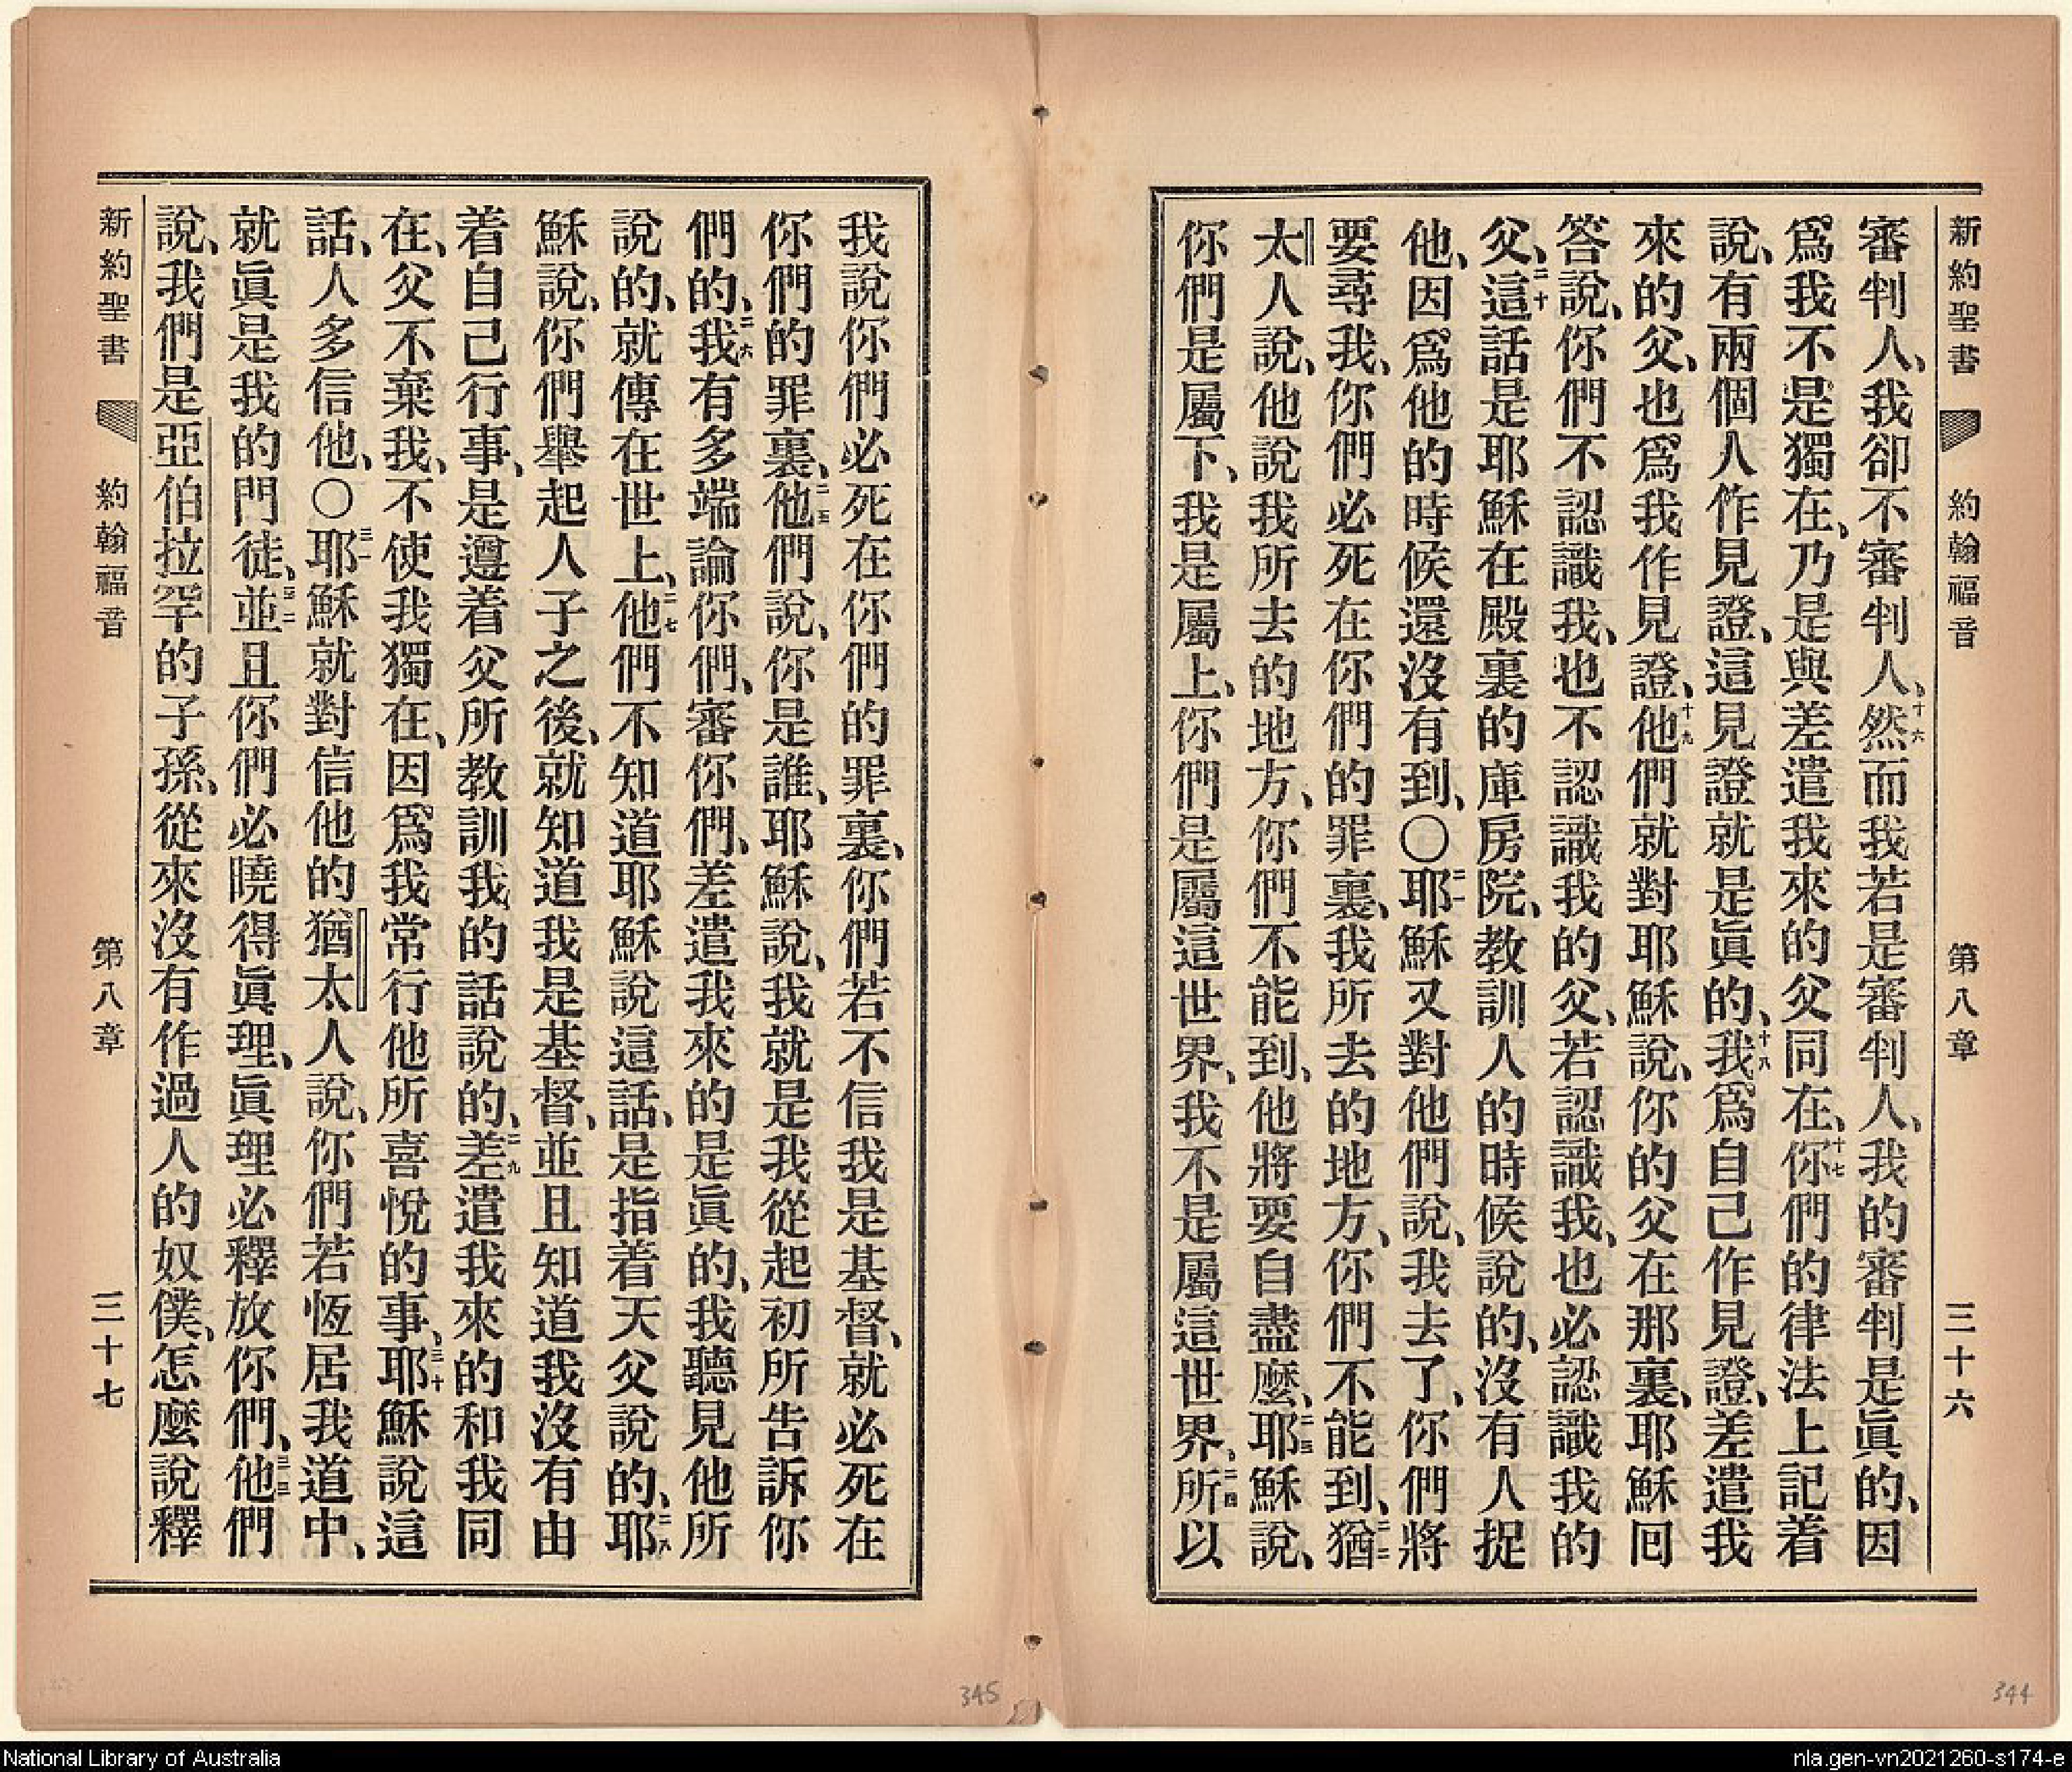 新約聖書 約翰福音 第八章 三十六
審判人、我卻不審判人、十六然而我若是審判人、我的審判是眞的、因
爲我不是獨在、乃是與差遣我來的父同在、十七你們的律法上記着
說、有兩個人作見證、這見證就是眞的、十八我爲自己作見證、差遣我
來的父、也爲我作見證、十九他們就對耶穌說、你的父在那裏、耶穌囘
答說、你們不認識我、也不認識我的父、若認識我、也必認識我的
父、二十這話是耶穌在殿裏的庫房院、教訓人的時候說的、沒有人捉
他、因爲他的時候還沒有到、〇二一耶穌又對他們說、我去了、你們將
要尋我、你們必死在你們的罪裏、我所去的地方、你們不能到、二二猶
太人說、他說我所去的地方、你們不能到、他將要自盡麽、二三耶穌說、
你們是屬下、我是屬上、你們是屬這世界、我不是屬這世界、二四所以
我說你們必死在你們的罪裏、你們若不信我是基督、就必死在
你們的罪裏、二五他們說、你是誰、耶穌說、我就是我從起初所告訴你
們的、二六我有多端論你們、審你們、差遣我來的是眞的、我聽見他所
說的、就傳在世上、二七他們不知道耶穌說這話、是指着天父說的、二八耶
穌說、你們舉起人子之後、就知道我是基督、並且知道我沒有由
着自己行事、是遵着父所教訓我的話說的、二九差遣我來的和我同
在、父不棄我、不使我獨在、因爲我常行他所喜悅的事、三十耶穌說這
話、人多信他、〇三一耶穌就對信他的猶太人說、你們若恆居我道中、
就眞是我的門徒、三二並且你們必曉得眞理、眞理必釋放你們、三三他們
說、我們是亞伯拉罕的子孫、從來沒有作過人的奴僕、怎麽說釋
新約聖書 約翰福音 第八章 三十七
345
344
National Library of Australia
nla.gen-vn2021260-s174-e